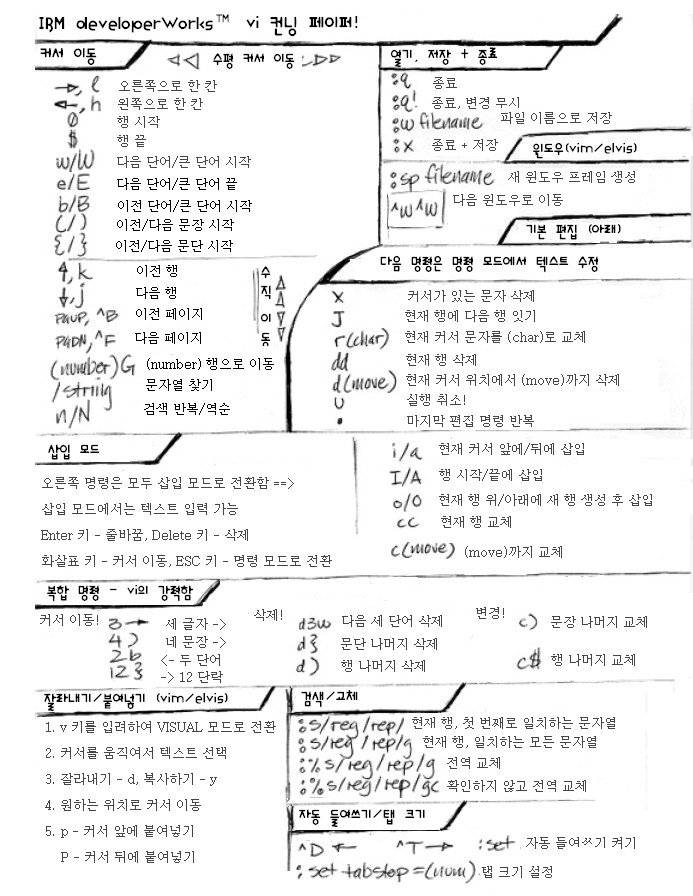 IBM developerWorks™ vi 컨닝 페이퍼!
커서 이동
◁◁ 수평 커서 이동 ▷▷
→, l 오른쪽으로 한 칸
←, h 왼쪽으로 한 칸
0 행 시작
$ 행 끝
w/W 다음 단어/큰 단어 시작
e/E 다음 단어/큰 단어 끝
b/B 이전 단어/큰 단어 시작
(/) 이전/다음 문장 시작
{/} 이전/다음 문단 시작
↑, k 이전 행
↓, j 다음 행
PgUP, ^B 이전 페이지
PgDN, ^F 다음 페이지
수직 이동
(number)G (number) 행으로 이동
/string 문자열 찾기
n/N 검색 반복/역순
열기, 저장 + 종료
:q 종료
:q! 종료, 변경 무시
:w filename 파일 이름으로 저장
:x 종료 + 저장
윈도우(vim/elvis)
:sp filename 새 윈도우 프레임 생성
^w^w 다음 윈도우로 이동
기본 편집 (아래)
다음 명령은 명령 모드에서 텍스트 수정
x 커서가 있는 문자 삭제
J 현재 행에 다음 행 잇기
r(char) 현재 커서 문자를 (char)로 교체
dd 현재 행 삭제
d(move) 현재 커서 위치에서 (move)까지 삭제
U 실행 취소!
. 마지막 편집 명령 반복
삽입 모드
오른쪽 명령은 모두 삽입 모드로 전환함 ==>
삽입 모드에서는 텍스트 입력 가능
Enter 키 - 줄바꿈, Delete 키 - 삭제
화살표 키 - 커서 이동, ESC 키 - 명령 모드로 전환
i/a 현재 커서 앞에/뒤에 삽입
I/A 행 시작/끝에 삽입
o/O 현재 행 위/아래에 새 행 생성 후 삽입
cc 현재 행 교체
c(move) (move)까지 교체
복합 명령 - vi의 강력함
커서 이동!
3→ 세 글자 ->
4) 네 문장 ->
2b <- 두 단어
12} -> 12 단락
삭제!
d3w 다음 세 단어 삭제
d} 문단 나머지 삭제
d) 행 나머지 삭제
변경!
c) 문장 나머지 교체
c$ 행 나머지 교체
잘라내기/붙여넣기 (vim/elvis)
1. v 키를 입려하여 VISUAL 모드로 전환
2. 커서를 움직여서 텍스트 선택
3. 잘라내기 - d, 복사하기 - y
4. 원하는 위치로 커서 이동
5. p - 커서 앞에 붙여넣기
P - 커서 뒤에 붙여넣기
검색/교체
:s/reg/rep/ 현재 행, 첫 번째로 일치하는 문자열
:s/reg/rep/g 현재 행, 일치하는 모든 문자열
:%s/reg/rep/g 전역 교체
:%s/reg/rep/gc 확인하지 않고 전역 교체
자동 들여쓰기/탭 크기
^D ← ^T → :set 자동 들여쓰기 켜기
:set tabstop=(num) 탭 크기 설정